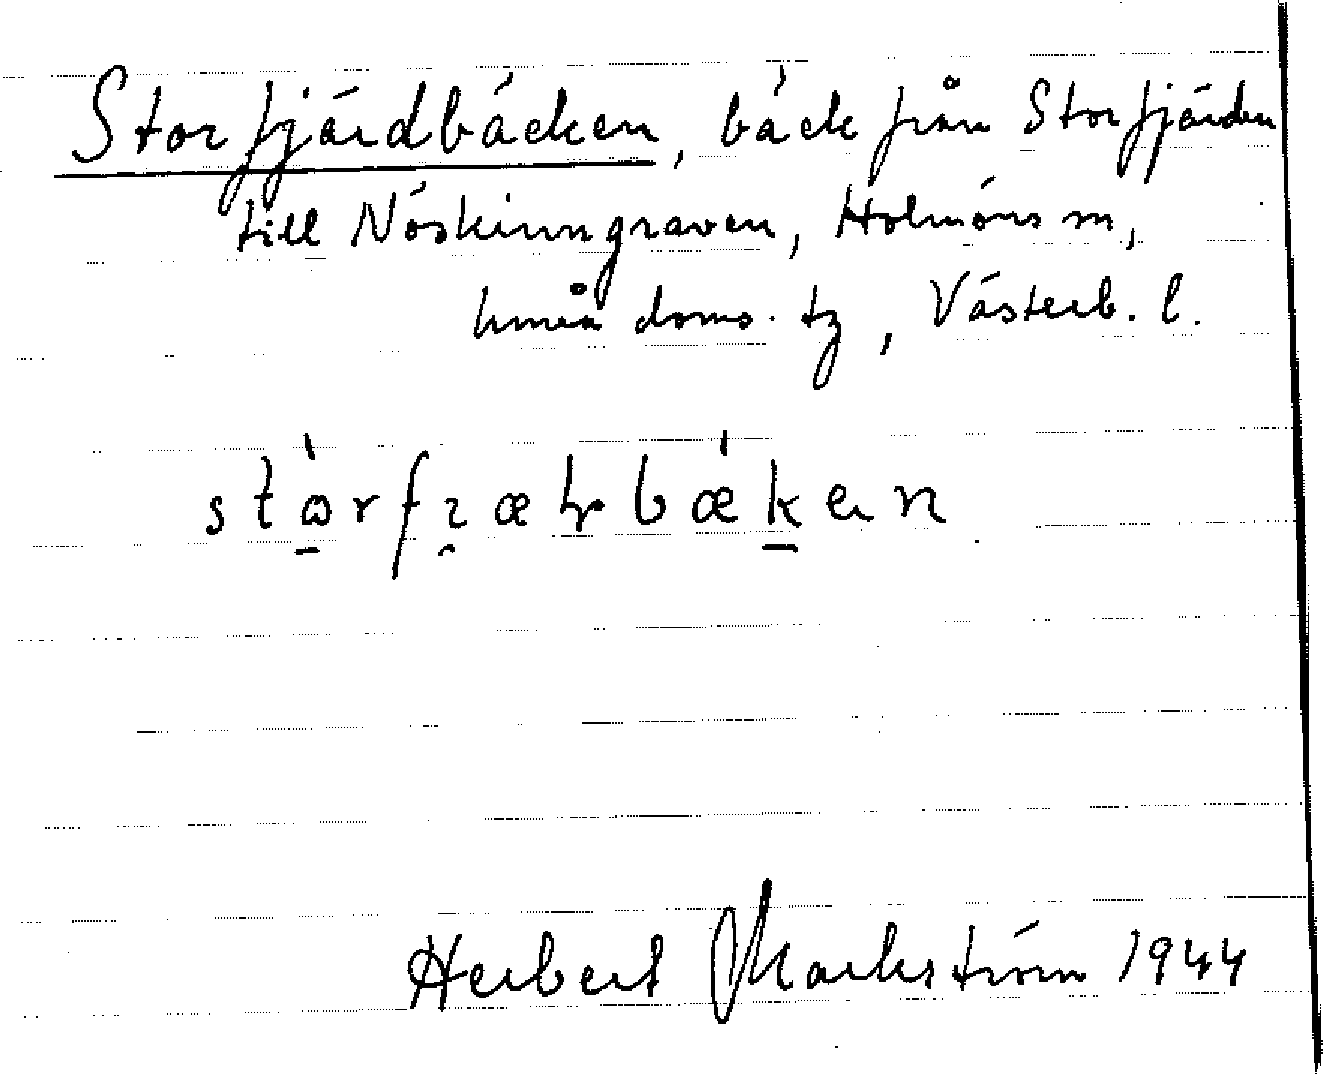 Storfjärdbäcken, bäck från Storfjärden
till Nöskinngraven, Holmöns sn,
Umeå doms. tg, Västerb. l.
Herbert Markström 1944